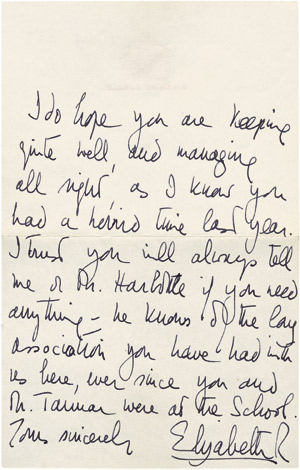 I do hope you are keeping
quite well, and managing
all right, as I know you
had a horrid time last year.
I trust you will always tell
me or Mr. Harlottle if you need
anything - he knows of the long
association you have had with
us here, ever since you and
Mr. Tannar were at the School.
Yours sincerely
Elizabeth R